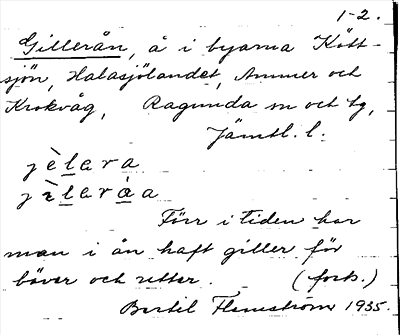 1-2.
Gillerån, å i byarna Kött-
sjön, Halasjölandet, Ammer och
Krokvåg, Ragunda sn och tg,
Jämtl. l.
jèlara
jìlaràa
Förr i tiden har
man i ån haft giller för
bäver och utter. (forts.)
Bertil Flemström 1935.